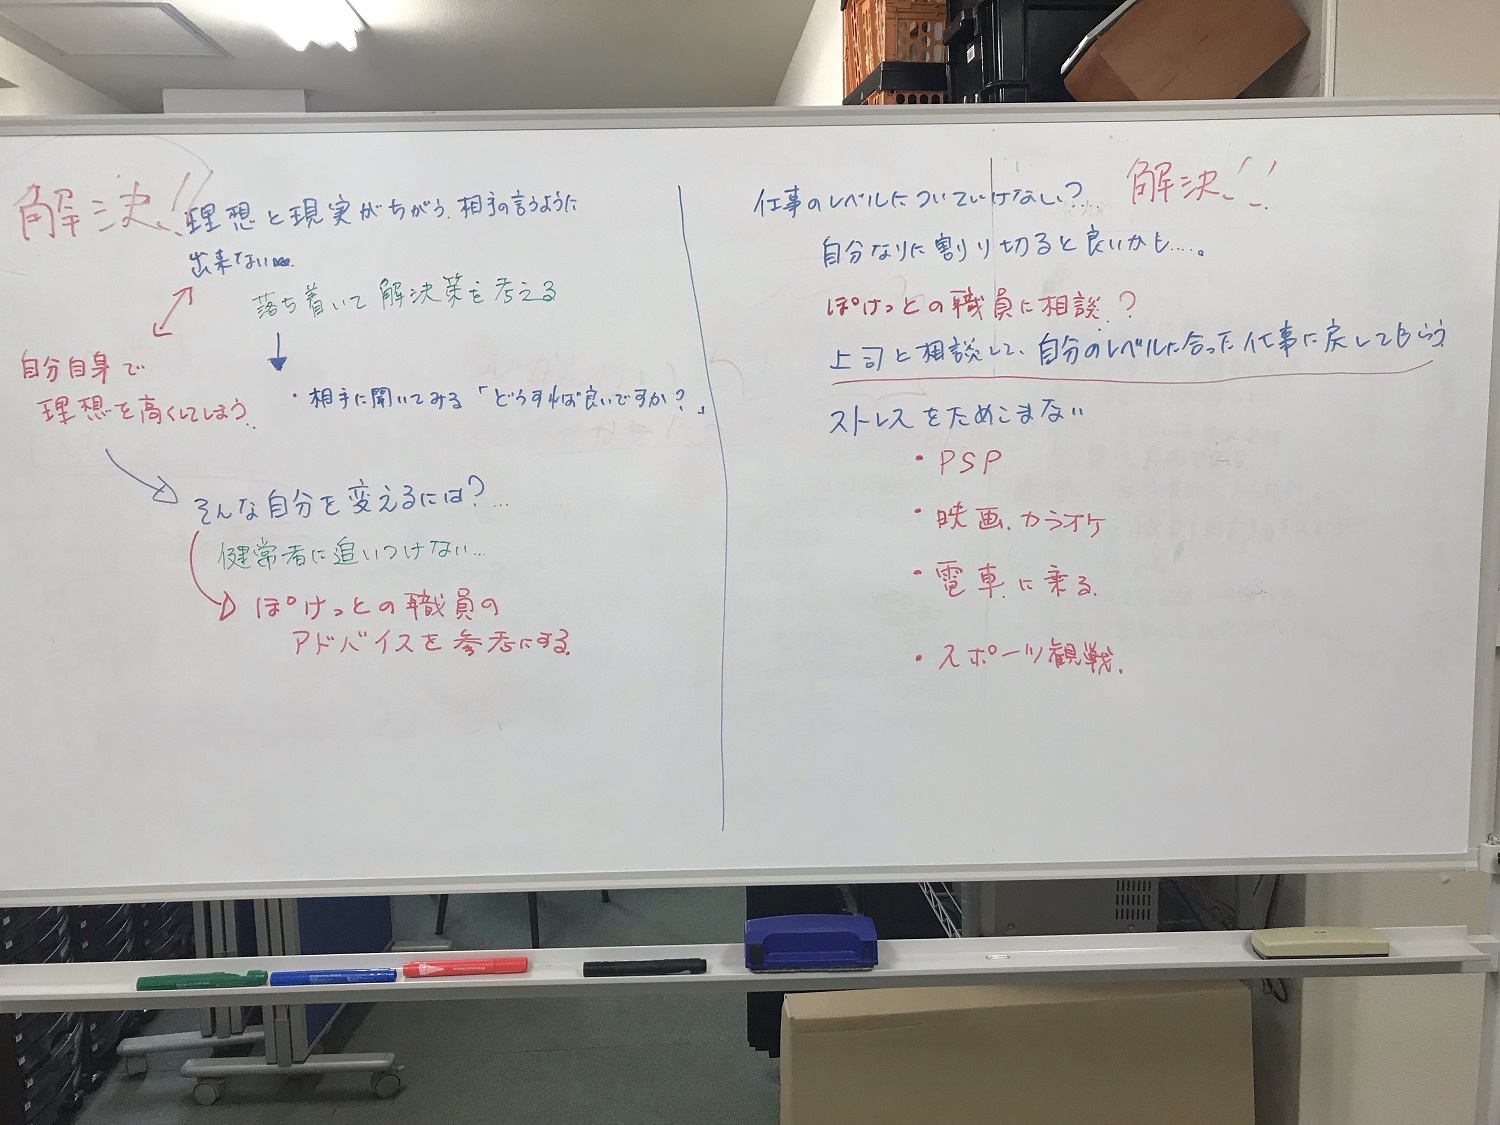 解決!!
理想と現実がちがう。相手の言うように
出来ない…
落ち着いて解決策を考える
自分自身で
理想を高くしてしまう。
・相手に聞いてみる「どうすれば良いですか?」
そんな自分を変えるには?…
健常者に追いつけない…
ぽけっとの職員の
アドバイスを参考にする。
仕事のレベルについていけなし?
解決!!
自分なりに割り切ると良いかも….。
ぽけっとの職員に相談.?
上司と相談して、自分のレベルに合った仕事に戻してもらう
ストレスをためこまない
・PSP
・映画、カラオケ
・電車に乗る
・スポーツ観戦.